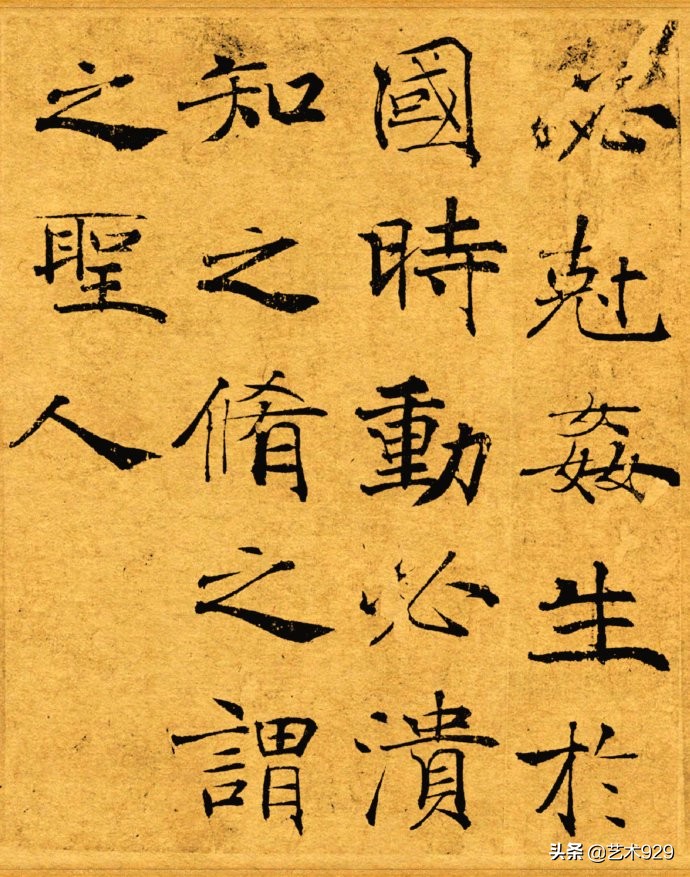 必尅姦生於
國時動必潰
知之脩之謂
之聖人
头条 @艺术929